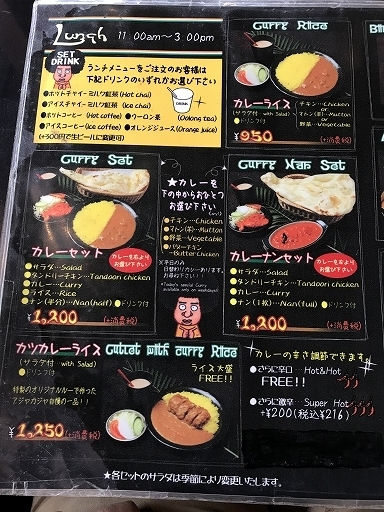 Lunch 11.00am～3.00pm
SET DRINK
ランチメニューをご注文のお客様は
下記ドリンクのいずれかお選び下さい
●ホットチャイ-ミルク紅茶 (Hot chai)
●アイスチャイ-ミルク紅茶 (Ice chai)
●ホットコーヒー (Hot coffee) ●ウーロン茶 (Oolong tea)
●アイスコーヒー (Ice coffee) ●オレンジジュース (Orange juice)
+500円で生ビールに変更可)
DRINK
Curry Rice
カレーライス
(サラダ付 with Salad)
●ドリンク付
チキン…Chicken
マトン(羊)…Mutton
野菜…Vegetable
¥950 (+消費税)
Curry Set
カレーセット
カレーを右よりお選び下さい
●サラダ…Salad
●タンドリーチキン…Tandoori chicken
●カレー…Curry
●ライス…Rice
●ナン(半分)…Nan(half) ●ドリンク付
¥1,200 (+消費税)
★カレーを
下の中からおひとつ
お選び下さい
●チキン…Chicken
●マトン(羊)…Mutton
●野菜…Vegetable
●バターチキン
…Butter Chicken
※平日のみ
日替わりカレーあります。
*Today's special Curry
available only on weekdays!!
Curry Nan Set
カレーナンセット
カレーを左よりお選び下さい
●サラダ…Salad
●タンドリーチキン…Tandoori chicken
●カレー…Curry
●ナン(1枚)…Nan(full) ●ドリンク付
¥1,200 (+消費税)
カツカレーライス Cutlet with curry Rice
(サラダ付 with Salad)
●ドリンク付
ライス大盛
FREE!!
特製のオリジナルルーで作った
アジャカジャ自慢の一品!!
¥1,250 (+消費税)
★カレーの辛さ調節できます★
●さらに辛口…Hot&Hot
FREE!!
●さらに激辛…Super Hot
+¥200(税込¥216)
★各セットのサラダは季節により変更いたします。